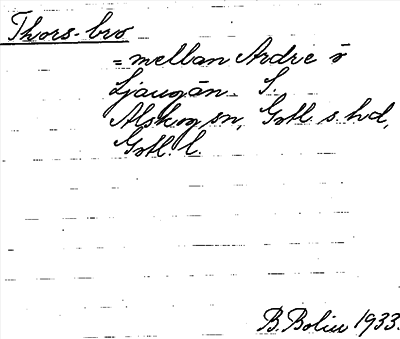 Thors-bro
= mellan Ardre o
Ljaugån. S.
Alskog sn, Gotl. s. hd,
Gotl. l.
B. Bolin 1933.